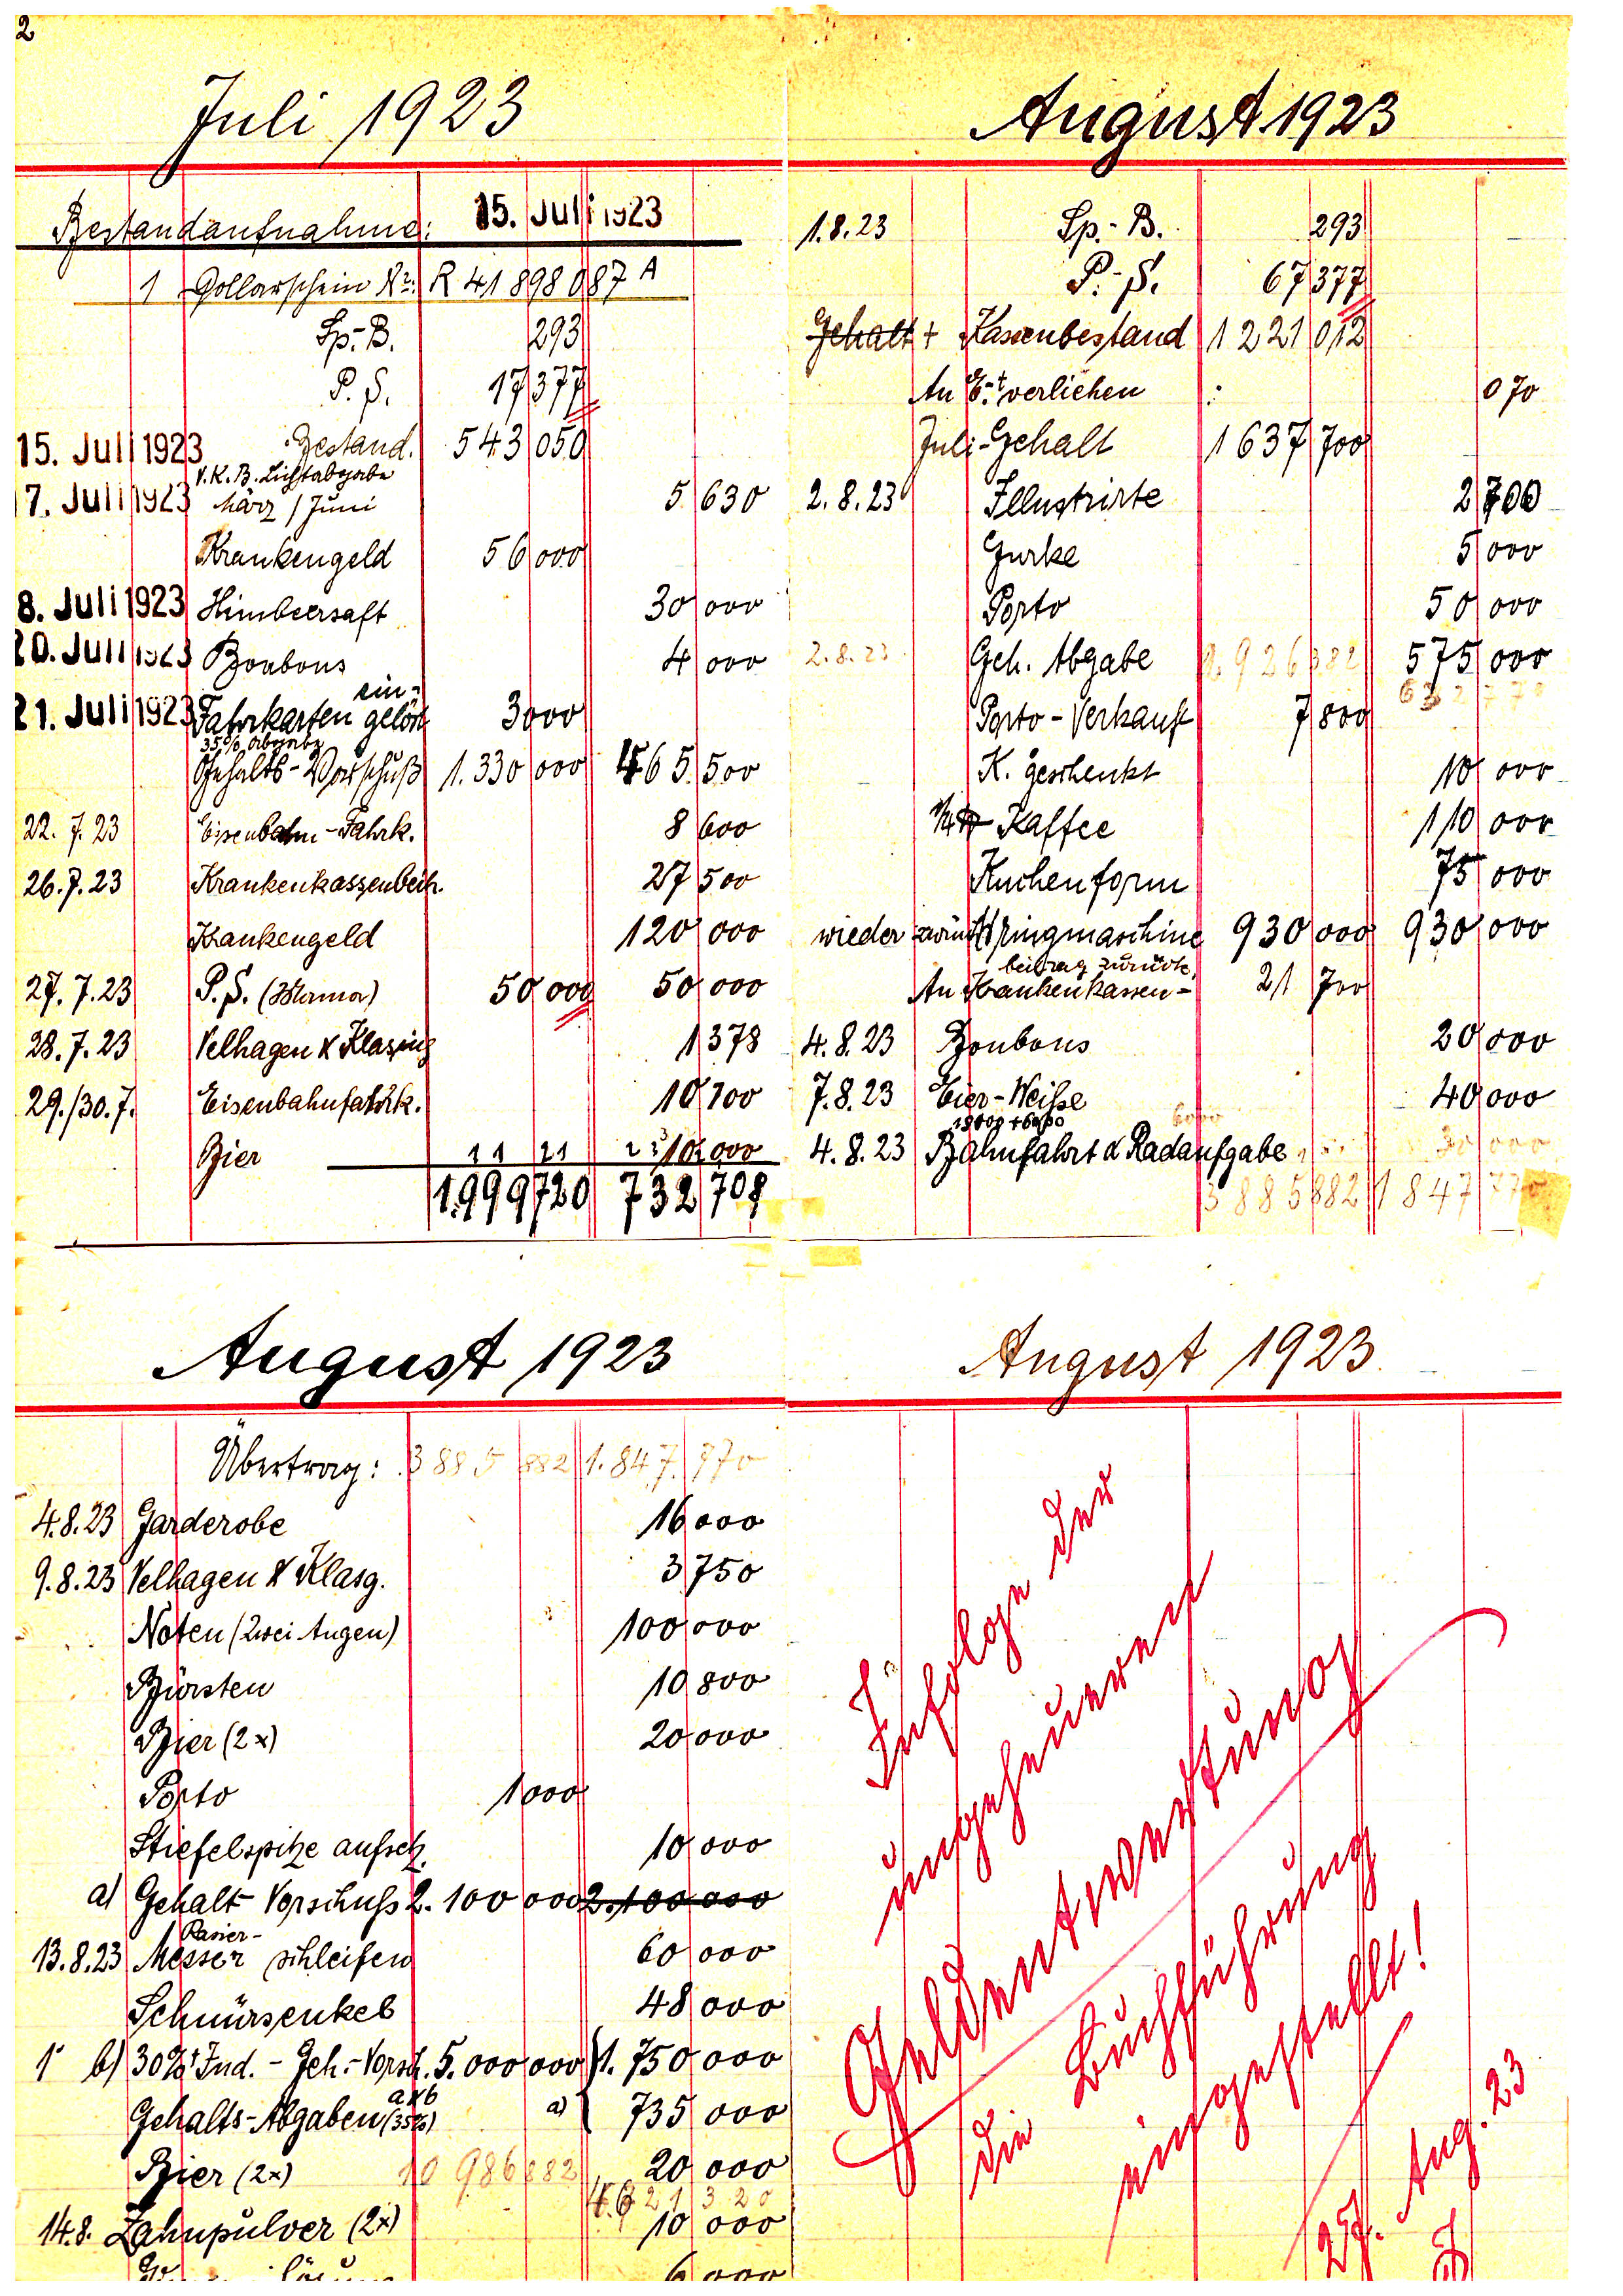 2
Juli 1923
Bestandaufnahme: 15. Juli 1923
1 Dollarschein Nr: R 41 898 087 A
Sp.-B. 293
P. S. 17 377
15. Juli 1923 Bestand. 543 050
V.K.B. Lichtabgabe
17. Juli 1923 März / Juni 5 630
Krankengeld 56 000
8. Juli 1923 Himbeersaft 30 000
20. Juli 1923 Bonbons 4 000
ein-
21. Juli 1923 Fahrkarten gelöst 3000
35% Abgabe
Gehalts-Vorschuß 1.330 000 465.500
22. 7. 23 Eisenbahn-Fahrk. 8 600
26. 7. 23 Krankenkassenbeitr. 27 500
Krankengeld 120 000
27. 7. 23 P. S. 50 000 50 000
28. 7. 23 Velhagen & Klasing 1 378
29./30. 7. Eisenbahnfahrk. 10 700
Bier 10 000
1.999 720 732 708
August 1923
1. 8. 23 Sp.-B. 293
P.-S. 67 377
Gehalt + Kassenbestand 1 221 012
An verliehen 070
Juli-Gehalt 1 637 700
2. 8. 23 Illustrirte 2 700
Gurke 5 000
Porto 50 000
2. 8. 23 Geh. Abgabe 2.926 382 575 000
632 770
Porto-Verkauf 7 800
K. geschenkt 10 000
1/4 ℔ Kaffee 110 000
Kuchenform 75 000
wieder zurück Wringmaschine 930 000 930 000
beitrag zurück
An Krankenkassen- 21 700
4. 8. 23 Bonbons 20 000
7. 8. 23 Eier-Weiße 40 000
18000 + 6000 6000
4. 8. 23 Bahnfahrt & Radaufgabe 30 000
3 885 882 1 847 770
August 1923
Übertrag: 3 885 882 1.847.770
4. 8. 23 Garderobe 16 000
9. 8. 23 Velhagen & Klasg. 3 750
Noten (Zwei Augen) 100 000
Bürsten 10 800
Bier (2x) 20 000
Porto 1000
Stiefelspitze aufsetz. 10 000
a) Gehalt Vorschuss 2.100 000 2.100 000
Rasier-
13. 8. 23 Messer schleifen 60 000
Schnürsenkel 48 000
b) 30% Ind.-Geh.-Vorsch. 5.000 000 1.750 000
a & b
Gehalts-Abgaben (35%) a) 735 000
Bier (2x) 10 986 882 20 000
4.621 320
14. 8. Zahnpulver (2x) 10 000
6 000
August 1923
Infolge der
ungeheueren
Geldentwertung
die Buchführung
eingestellt!
25. Aug. 23